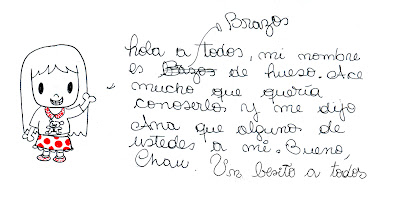 Brazos
hola a todos, mi nombre
es Bazos de hueso. Ace
mucho que queria
conoserlos y me dijo
Ana que algunos de
ustedes a mí. Bueno,
Chau. Un besito a todos